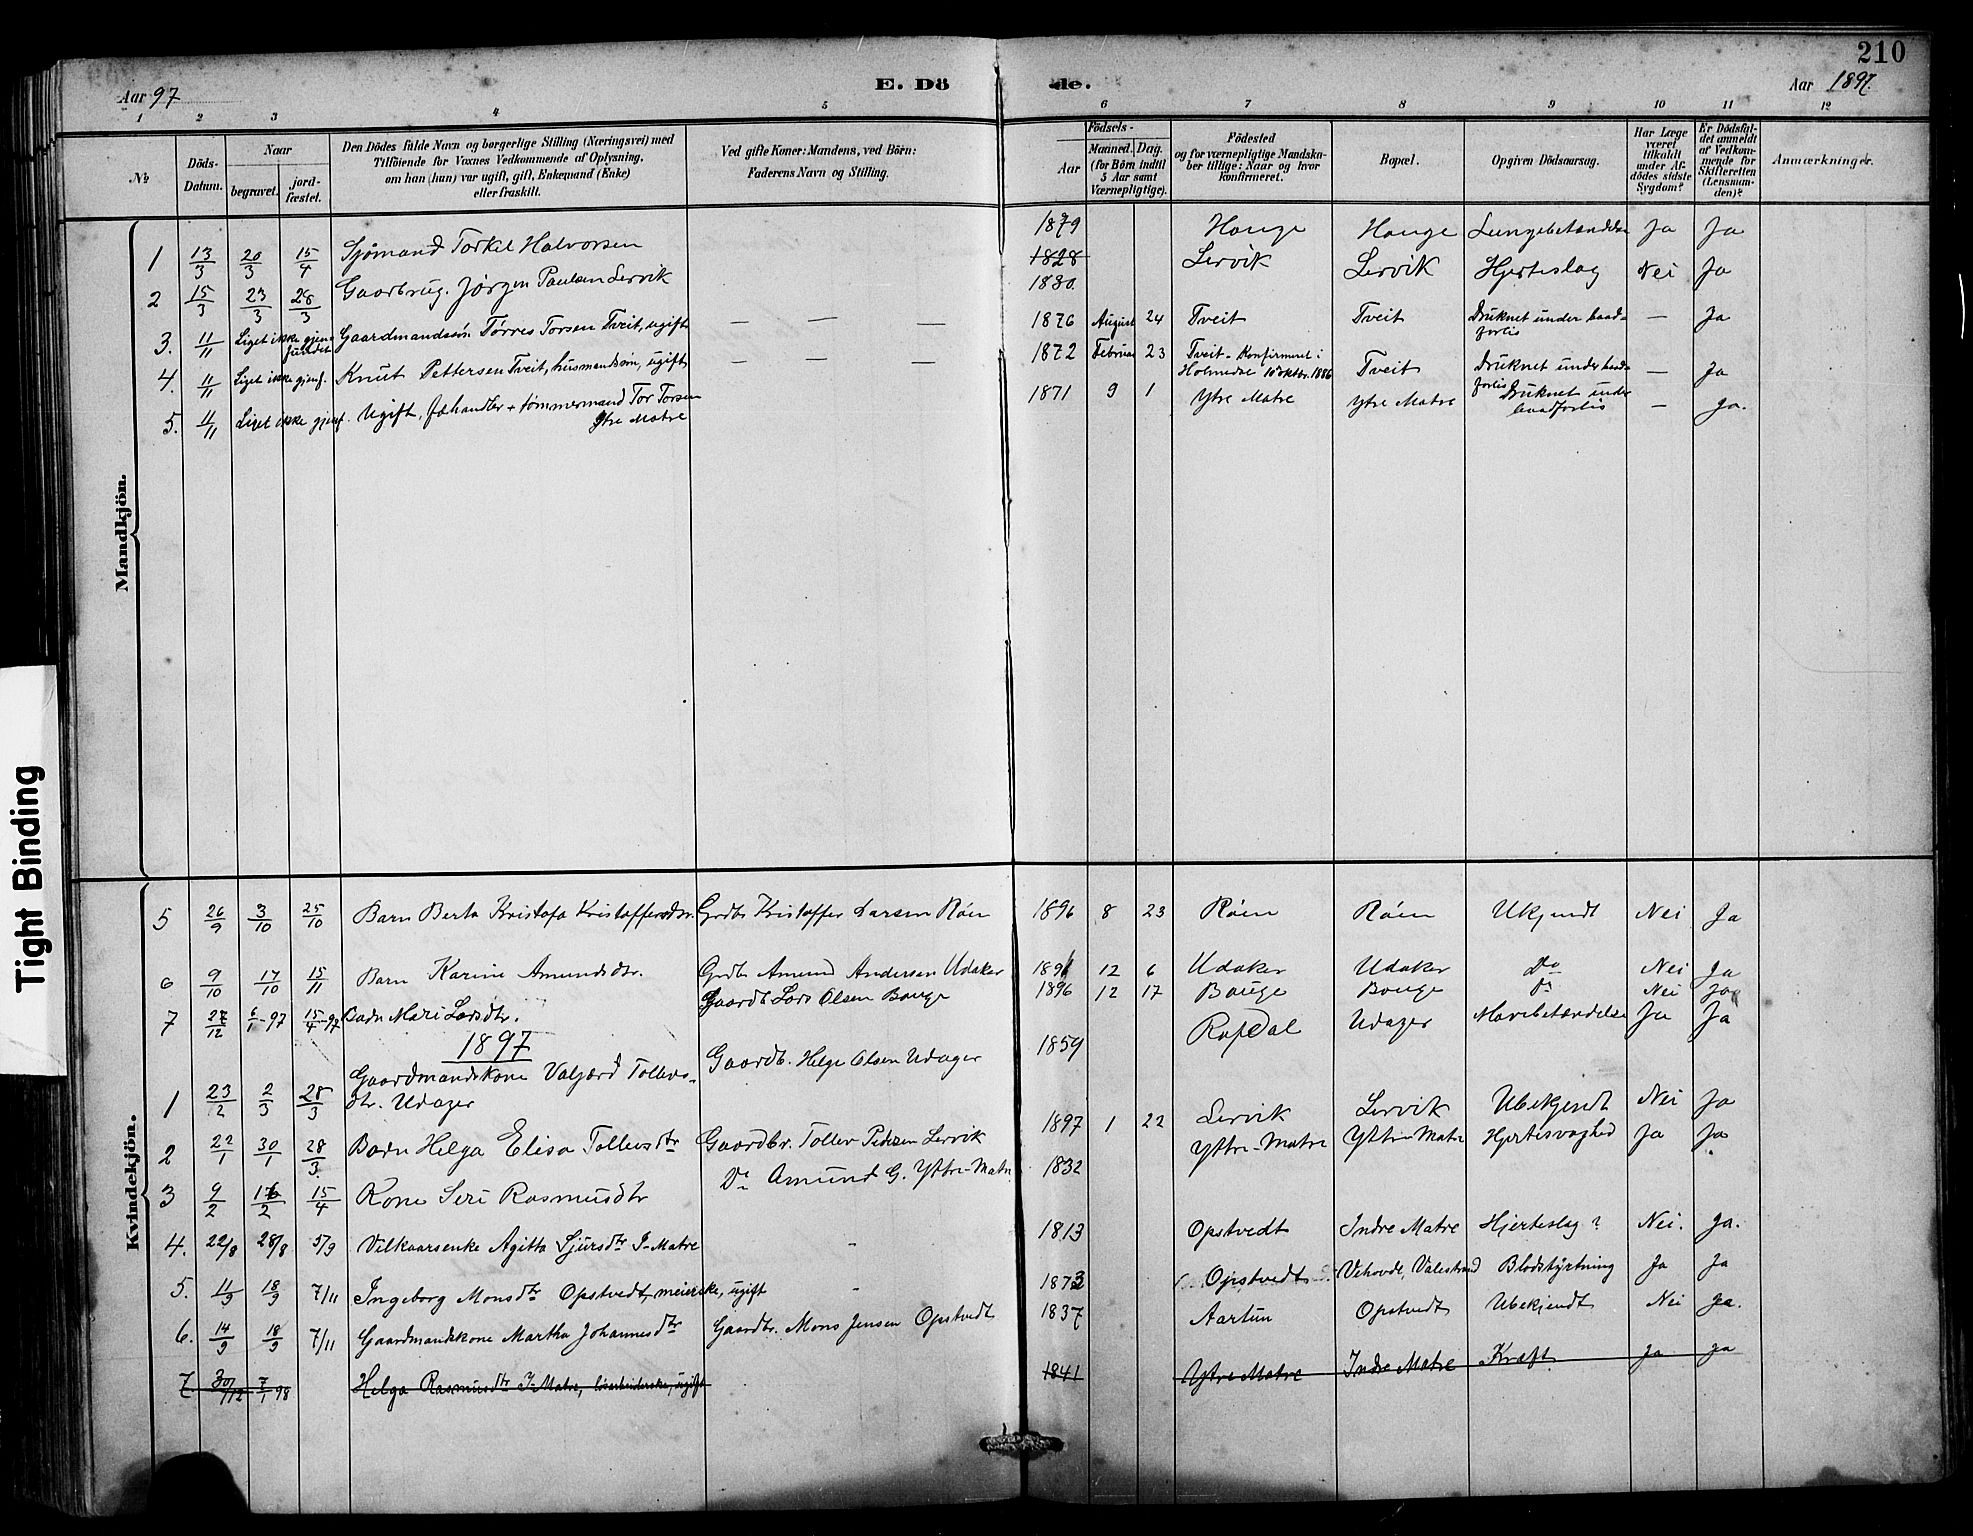 210
Aar 97
E. Dö de.
Aar 1897.
1 2 3 4 5 6 7 8 9 10 11 12
No
Döds-Datum.
Naar
begravet. jordfæstet.
Den Dödes fulde Navn og borgerlige Stilling (Næringsvei) med
Tilföiende for Voxnes Vedkommende af Oplysning,
om han (hun) var ugift, gift, Enkemand (Enke)
eller fraskilt.
Ved gifte Koner: Mandens, ved Börn:
Faderens Navn og Stilling.
Födsels-
Aar
Maaned. Dag.
(for Börn indtil
5 Aar samt
Værnepligtige).
Födested
og for værnepligtige Mandska-
ber tillige: Naar og hvor
konfirmeret.
Bopæl.
Opgiven Dödsaarsag.
Har Læge
været
tilkaldt
under Af-
dödes sidste
Sygdom?
Er Dödsfal-
det anmeldt
af Vedkom-
mende for
Skifteretten
(Lensman-
den)?
Anmærkninger.
Mandkjön.
1 13/3 20/3 15/4 Sjømand Torkel Halvorsen 1879 Hauge Hauge Lungebetændelse Ja Ja
2 15/3 23/3 28/3 Gaardbrug. Jørgen Paulsen Lervik 1828 1830. Lervik Lervik Hjerteslag Nei Ja
3. 11/11 Liget ikke gjenfundet Gaardmandssøn Tørres Torsen Tveit, ugift — — — 1876 August 24 Tveit Tveit Druknet under baadforlis — Ja
4. 11/11 Liget ikke gjenf. Knut Pettersen Tveit, husmandsøn, ugift — — — 1872 Februar 23 Tveit - Konfirmeret i Holmedal 10 oktbr. 1886 Tveit Druknet under baadforlis — Ja
5. 11/11 Liget ikke gjenf. Ugift, fæhandler + tømmermand Tor Torsen Ytre Matre 1871 9 1 Ytre Matre Ytre Matre Druknet under baadforlis — Ja.
Kvindekjön.
5 26/9 3/10 25/10 Barn Berta Kristofa Kristoffersdtr. Grdb. Kristoffer Larsen Røen 1896 8 23 Røen Røen Ukjendt Nei Ja
6 9/10 17/10 15/11 Barn Karine Amundsdtr. Grdb. Amund Andersen Udaker 1896 12 6 Udaker Udaker Do Nei Ja
7 27/12 6/1-97 15/4-97 Barn Mari Larsdtr. Gaardb. Lars Olsen Bauge 1896 12 17 Bauge Bauge Do Nei Ja
1897
1 23/2 2/3 28/3 Gaardmandskone Valjærd Tollevsdtr. Udager Gaardb. Helge Olsen Udager 1859 Udager Mavebetændelse Ja Ja
2 22/1 30/1 28/3. Barn Helga Elisa Tollevsdtr Gaardbr. Tollev Pedersen Lervik 1897 1 22 Lervik Lervik Ubekjendt Nei Ja
3 9/2 16/2 15/4 Kone Seri Rasmusdtr Do Amund G. Yttre-Matre 1832 Yttre-Matre Yttre-Matre Hjertesvaghed Ja Ja
4. 22/8 28/8 5/9 Vilkaarsenke Agitta Sjursdtr I-Matre - 1813 Opstvedt Indre Matre Hjerteslag? Nei. Ja.
5. 11/9 18/9 7/11 Ingeborg Monsdtr Opstvedt, meierske, ugift - 1873 Opstvedt Vehovde, Valestrand Blodstyrtning Ja Ja
6. 14/9 18/9 7/11 Gaardmandskone Martha Johannesdtr Gaardbr. Mons Jensen Opstvedt 1837 Aartun Opstvedt Ubekjendt Nei Ja.
7 30/12 7/1 98 Helga Rasmusdtr I-Matre, løsarbeiderske, ugift 1841 Ytre Matre Indre Matre Kræft Ja Ja
Tight Binding